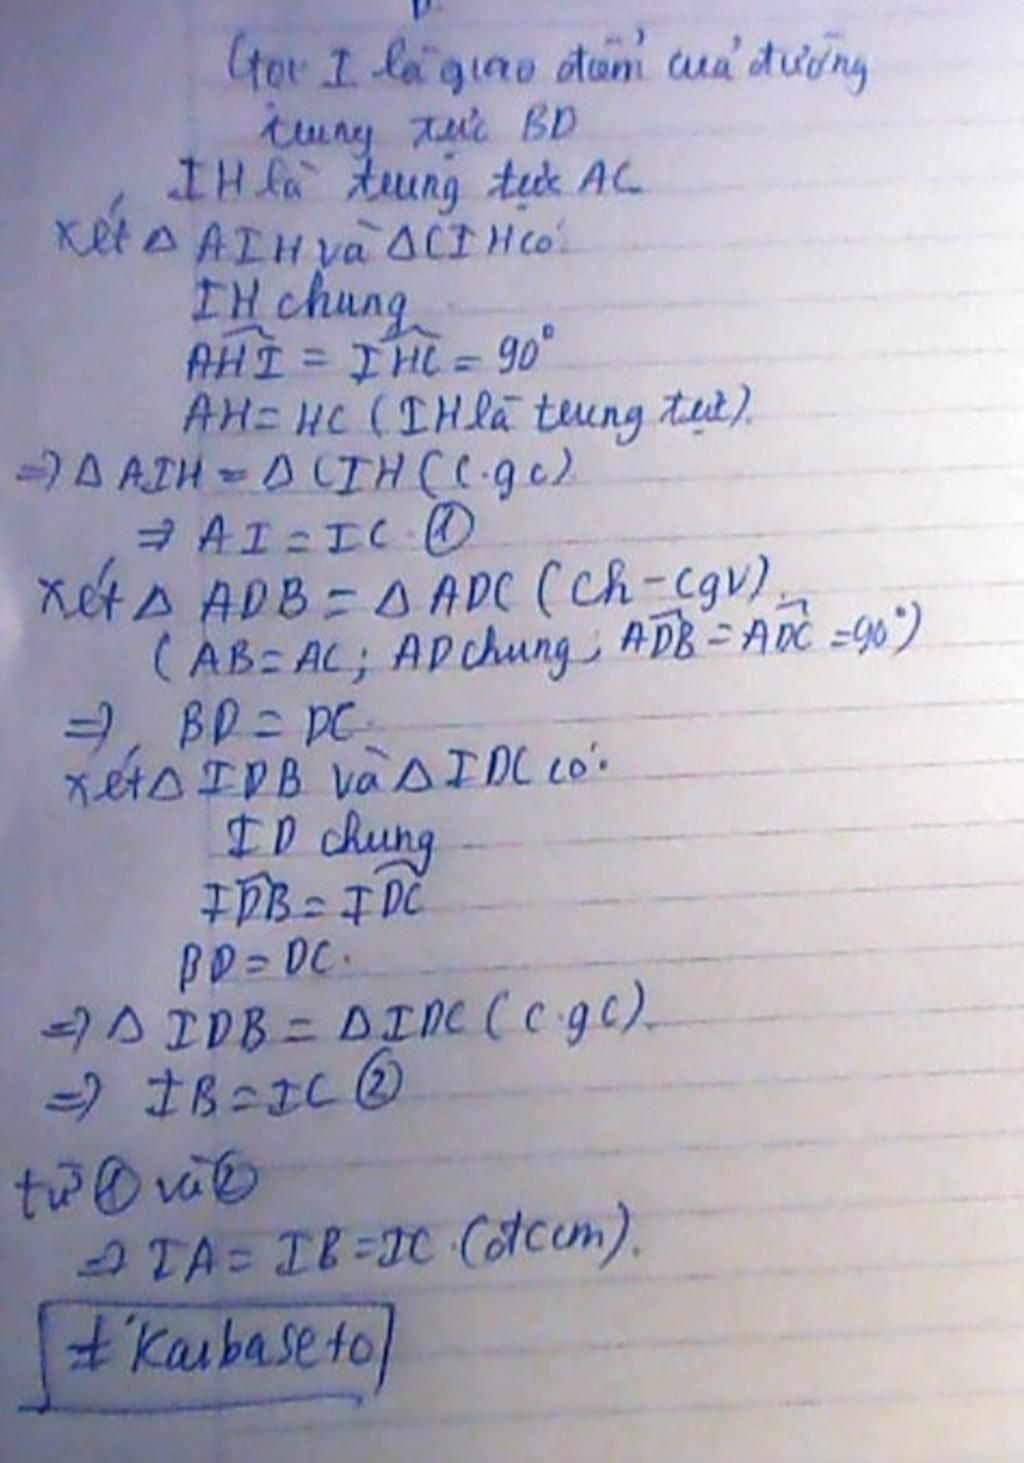 Gọi I là giao điểm của đường
trung trực BD
IH là trung trực AC
xét △ AIH và △CIH có:
IH chung
AHI = IHC = 90°
AH = HC (IH là trung trực).
=> △ AIH = △ CIH (c.gc)
=> AI = IC. ①
xét △ ADB = △ ADC (ch-cgv).
(AB = AC; AD chung; ADB = ADC = 90°)
=> BD = DC.
xét △ IDB và △ IDC có:
ID chung
IDB = IDC
BD = DC.
=> △ IDB = △ IDC (c.gc).
=> IB = IC ②
từ ① và ②
=> IA = IB = IC. (đccm).
Kaibaseto